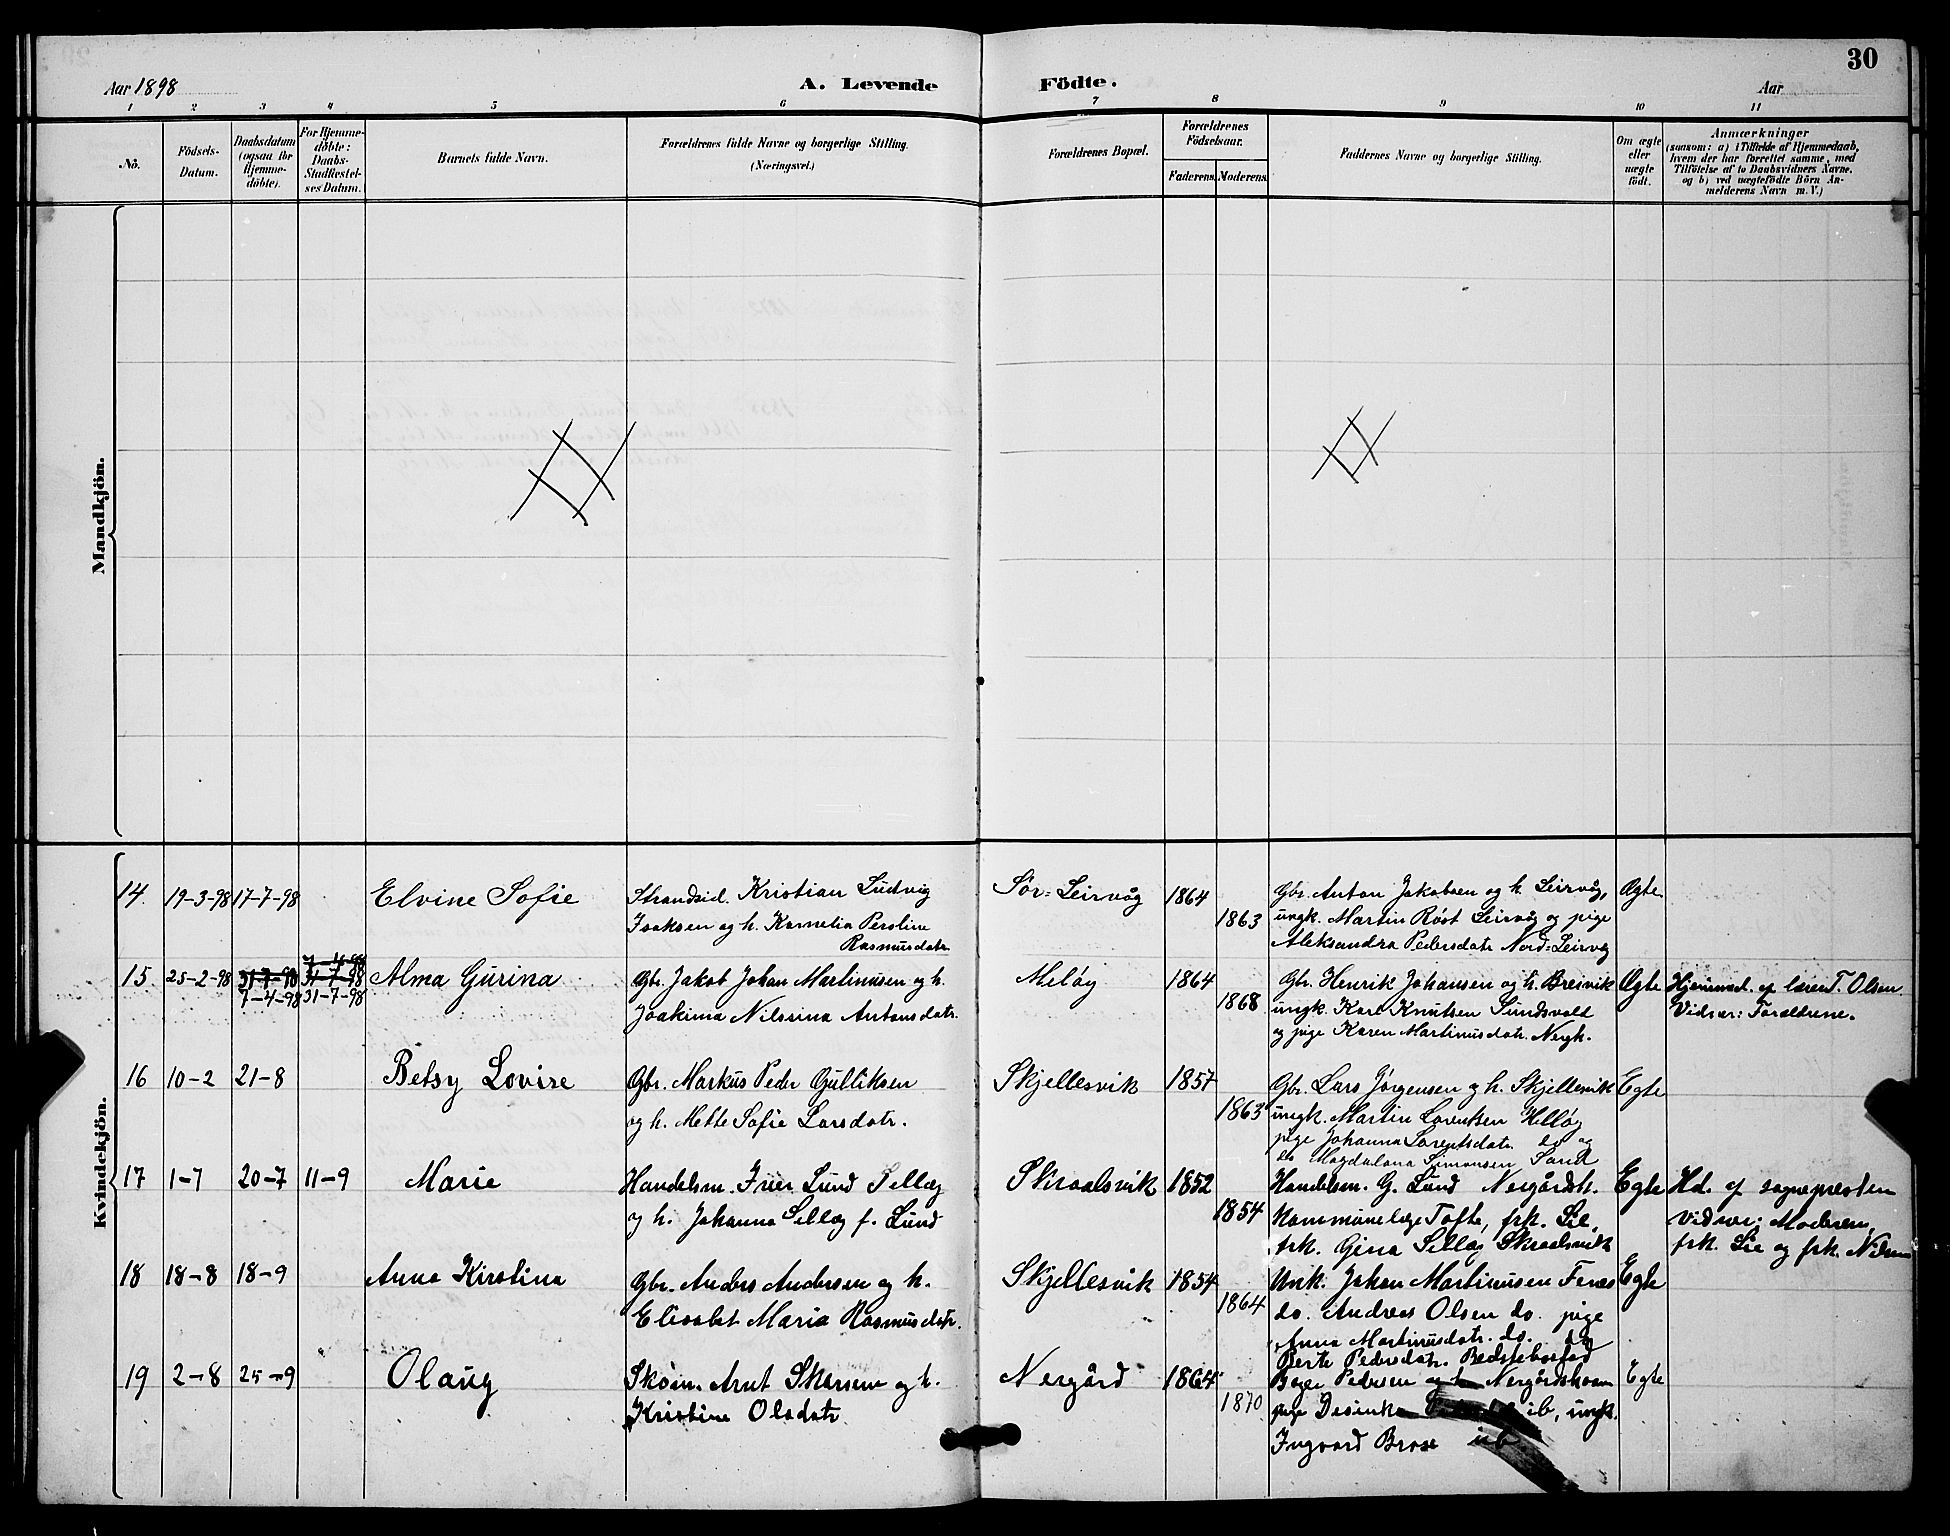 30
Aar 1898
A. Levende Födte.
Aar
1 2 3 4 5 6 7 8 9 10 11
No.
Födsels-Datum.
Daabsdatum (ogsaa for Hjemme-döbte).
For Hjemme-döbte: Daabs-Stadfæstel-ses Datum.
Barnets fulde Navn.
Forældrenes fulde Navne og borgerlige Stilling. (Næringsvei.)
Forældrenes Bopæl.
Forældrenes Födselsaar.
Faderens. Moderens.
Faddernes Navne og borgerlige Stilling.
Om ægte eller uægte født.
Anmærkninger
(saasom: a) i Tilfælde af Hjemmedaab,
hvem der har forrettet samme, med
Tilföielse af to Daabsvidners Navne,
og b) ved uægtefödte Börn An-
melderens Navn m. V.)
Mandkjön.
Kvindekjön.
14. 19-3-98 17-7-98 Elvine Sofie Strandsid. Kristian Ludvig Sör-Leirvåg 1864 Gbr. Anton Jakobsen og h. Leirvåg, Ægte
Isaksen og h. Karnelia Peroline 1863 ungk. Martin Röst Leirvåg og pige
Rasmusdatr. Aleksandra Pedersdatr Nord-Leirvåg
15. 25-2-98 31-7-98 7-4-98 31-7-98 Alma Gurina Gbr. Jakob Johan Martinusen og h. Meløy 1864 Gbr. Henrik Johansen og h. Breivik Ægte Hjemmed. af lærer T. Olsen
7-4-98 31-7-98 Joakima Nilsina Antonsdatr. 1868 ungk. Karl Knutsen Sundsvold Vidner: Forældrene.
og pige Karen Martinusdatr. Nergh.
16 10-2 21-8 Betsy Lovise Gbr. Markus Peder Gulliksen Skjellesvik 1857 Gbr. Lars Jørgensen og h. Skjellesvik Egte
og h. Mette Sofie Larsdatr. 1863 ungk. Martin Lorentsen Helløy
pige Johanna Lorentsdatr. do og
do Magdalena Simonsen Sand
17 1-7 20-7 11-9 Marie Handelsm. Iver Lund Selläg Skraalsvik 1852 Handelsm. G. Lund Nergårdsh. Egte Hd. af sognepresten
og h. Johanna Selläg f. Lund 1854 Kommunelæge Tofte, frk. Lie, Vidner: Moderen,
frk. Gina Selläg Skraalsvik frk. Lie og frk. Nilsen
18 18-8 18-9 Anna Kirstina Gbr. Anders Andersen og h. Skjellesvik 1854 Unk. Johan Martinusen Fenes Egte
Elisabet Maria Rasmusdatr. 1864 do. Andreas Olsen do. pige
Anna Martinusdatr. do. og
Berte Pedersdatr.
19 2-8 25-9 Olaug Skom. Arnt Skarsem og h. Nergård 1864 Pedersen og h. Egte
Kristine Olsdatr 1870 pige ib, ungk.
Ingvard Brose ib